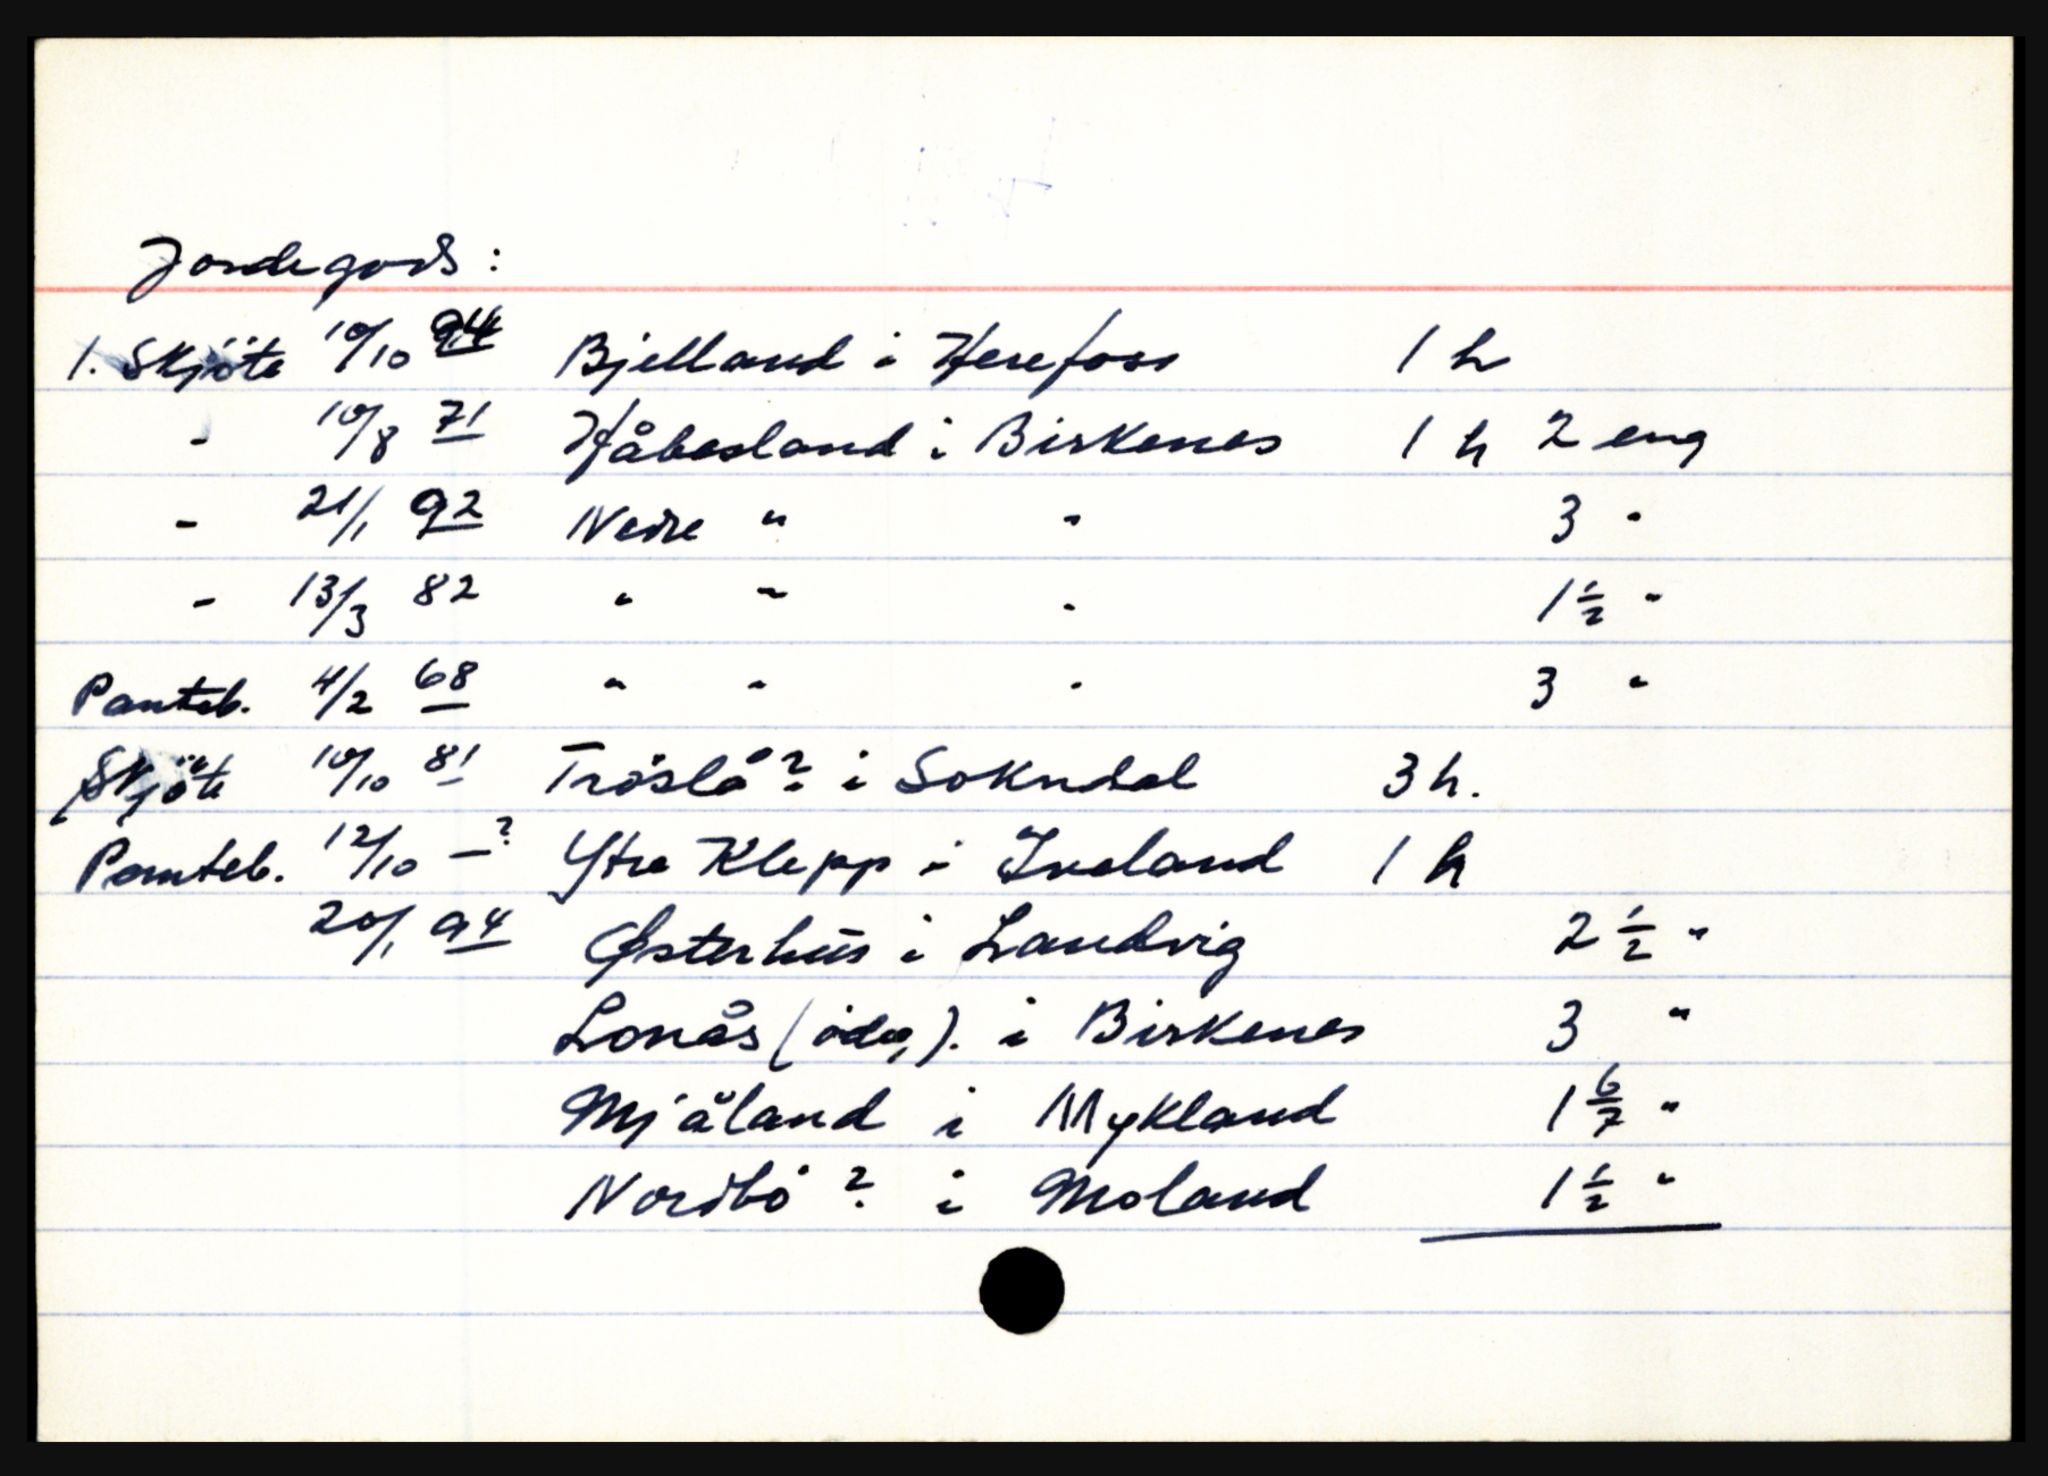 Jordegods:
1. Skjöte 10/10 94 Bjelland i Herefoss 1 h
- 10/8 71 Håbesland i Birkenes 1 h 2 eng
- 21/1 92 Nedre " " 3 "
- 13/3 82 " " " 1 1/2 "
Panteb. 4/2 68 " " " 3 "
Skjöte 10/10 81 Tröslå? i Sokndal 3 h.
Panteb. 12/10 —? Ytre Klepp i Iveland 1 h
20/1 94 Østerhus i Landvig 2 1/2 "
Lonås (ödeg.). i Birkenes 3 "
Mjåland i Mykland 1 6/7 "
Nordbö? i Moland 1 1/2 "